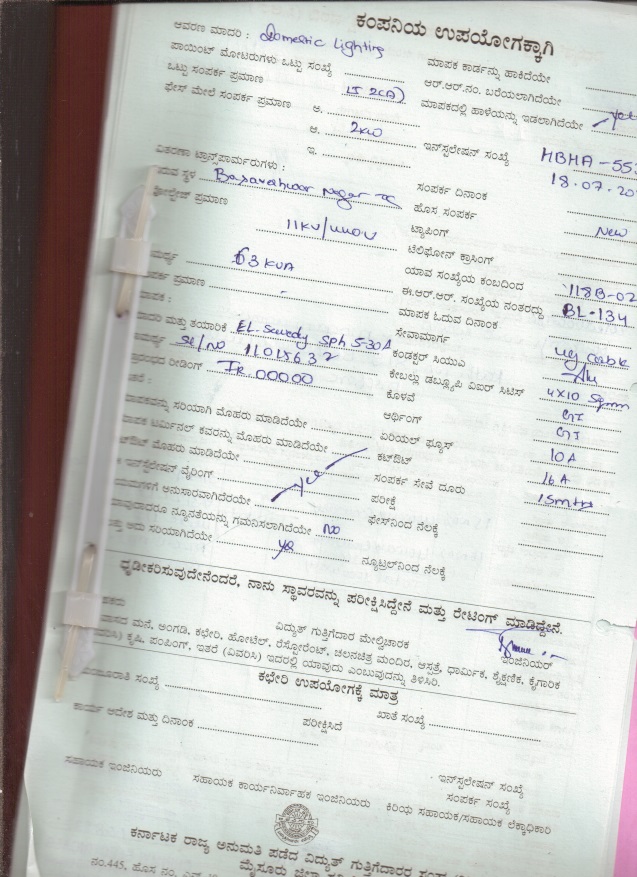 ಕಂಪನಿಯ ಉಪಯೋಗಕ್ಕಾಗಿ
ಆವರಣ ಮಾದರಿ : Domestic Lighting
ಮಾಪಕ ಕಾರ್ಡನ್ನು ಹಾಕಿದೆಯೇ
ಪಾಯಿಂಟ್ ಮೋಟರುಗಳು ಒಟ್ಟು ಸಂಖ್ಯೆ
ಆರ್.ಆರ್.ನಂ. ಬರೆಯಲಾಗಿದೆಯೇ
ಒಟ್ಟು ಸಂಪರ್ಕ ಪ್ರಮಾಣ LT 2(A)
ಮಾಪಕದಲ್ಲಿ ಹಾಳೆಯನ್ನು ಇಡಲಾಗಿದೆಯೇ yes
ಫೇಸ್ ಮೇಲೆ ಸಂಪರ್ಕ ಪ್ರಮಾಣ ಅ.
ಆ. 2kw
ಇನ್‌ಸ್ಟಲೇಷನ್ ಸಂಖ್ಯೆ HBHA-553
ಇ.
18.07.20
ವಿತರಣಾ ಟ್ರಾನ್ಸ್‌ಫಾರ್ಮರುಗಳು :
ಸಂಪರ್ಕ ದಿನಾಂಕ
ಸ್ಥಳ Basaveshwar Nagar TC
ಹೊಸ ಸಂಪರ್ಕ New
ವೋಲ್ಟೇಜ್ ಪ್ರಮಾಣ 11KV/440V
ಟ್ಯಾಪಿಂಗ್
ಟೆಲಿಫೋನ್ ಕ್ರಾಸಿಂಗ್
63 KVA
ಯಾವ ಸಂಖ್ಯೆಯ ಕಂಬದಿಂದ 118B-02
ಪ್ರಮಾಣ -
ಈ.ಆರ್.ಆರ್. ಸಂಖ್ಯೆಯ ನಂತರದ್ದು BL-134
ಮಾಪಕ :
ಮಾಪಕ ಓದುವ ದಿನಾಂಕ
ಮಾದರಿ ಮತ್ತು ತಯಾರಿಕೆ EL. Sewedy Sph 5-30A
ಸೇವಾಮಾರ್ಗ ug cable
Sl/no 11015632
ಕಂಡಕ್ಟರ್ ಸಿಯುಎ Alu
ರೀಡಿಂಗ್ IR 00000
ಕೇಬಲ್ಲು ಡಬ್ಲ್ಯೂಪಿ ವಿಐರ್ ಸಿಟಿಸ್ 4x10 Sqmm
ಕೊಳವೆ GI
ಮಾಪಕವನ್ನು ಸರಿಯಾಗಿ ಮೊಹರು ಮಾಡಿದೆಯೇ
ಅರ್ಥಿಂಗ್ GI
ಮಾಪಕ ಟರ್ಮಿನಲ್ ಕವರನ್ನು ಮೊಹರು ಮಾಡಿದೆಯೇ
ಏರಿಯಲ್ ಫ್ಯೂಸ್ 10A
ಕಟ್‌ಔಟ್ ಮೊಹರು ಮಾಡಿದೆಯೇ
ಕಟ್‌ಔಟ್ 16A
ಇನ್‌ಸ್ಟಲೇಷನ್ ವೈರಿಂಗ್
ಸಂಪರ್ಕ ಸೇವೆ ದೂರು 15mtrs
ನಿಯಮಗಳಿಗೆ ಅನುಸಾರವಾಗಿದೆಯೇ yes
ಪರೀಕ್ಷೆ
ಯಾವುದಾದರೂ ನ್ಯೂನತೆಯನ್ನು ಗಮನಿಸಲಾಗಿದೆಯೇ No
ಫೇಸ್‌ನಿಂದ ನೆಲಕ್ಕೆ
ಮತ್ತು ಅದು ಸರಿಯಾಗಿದೆಯೇ yes
ನ್ಯೂಟ್ರಲ್‌ನಿಂದ ನೆಲಕ್ಕೆ
ಧೃಡೀಕರಿಸುವುದೇನೆಂದರೆ, ನಾನು ಸ್ಥಾವರವನ್ನು ಪರೀಕ್ಷಿಸಿದ್ದೇನೆ ಮತ್ತು ರೇಟಿಂಗ್ ಮಾಡಿದ್ದೇನೆ.
ವಿದ್ಯುತ್ ಗುತ್ತಿಗೆದಾರ ಮೇಲ್ವಿಚಾರಕ
ಇಂಜಿನಿಯರ್
ವಾಸದ ಮನೆ, ಅಂಗಡಿ, ಕಛೇರಿ, ಹೋಟೆಲ್, ರೆಸ್ಟೋರೆಂಟ್, ಚಲನಚಿತ್ರ ಮಂದಿರ, ಆಸ್ಪತ್ರೆ, ಧಾರ್ಮಿಕ, ಶೈಕ್ಷಣಿಕ, ಕೈಗಾರಿಕ
(ವಿವರಿಸಿ) ಕೃಷಿ, ಪಂಪಿಂಗ್, ಇತರೆ (ವಿವರಿಸಿ) ಇದರಲ್ಲಿ ಯಾವುದು ಎಂಬುವುದನ್ನು ತಿಳಿಸಿರಿ.
ಕಛೇರಿ ಉಪಯೋಗಕ್ಕೆ ಮಾತ್ರ
ಮಂಜೂರಾತಿ ಸಂಖ್ಯೆ
ಖಾತೆ ಸಂಖ್ಯೆ
ಕಾರ್ಯ ಆದೇಶ ಮತ್ತು ದಿನಾಂಕ
ಪರೀಕ್ಷಿಸಿದೆ
ಇನ್‌ಸ್ಟಲೇಷನ್ ಸಂಖ್ಯೆ
ಸಂಪರ್ಕ ಸಂಖ್ಯೆ
ಸಹಾಯಕ ಇಂಜಿನಿಯರು
ಸಹಾಯಕ ಕಾರ್ಯನಿರ್ವಾಹಕ ಇಂಜಿನಿಯರು
ಕಿರಿಯ ಸಹಾಯಕ/ಸಹಾಯಕ ಲೆಕ್ಕಾಧಿಕಾರಿ
ಕರ್ನಾಟಕ ರಾಜ್ಯ ಅನುಮತಿ ಪಡೆದ ವಿದ್ಯುತ್ ಗುತ್ತಿಗೆದಾರರ ಸಂಘ
ಮೈಸೂರು ಜಿಲ್ಲಾ
ನಂ.445, ಹೊಸ ನಂ.